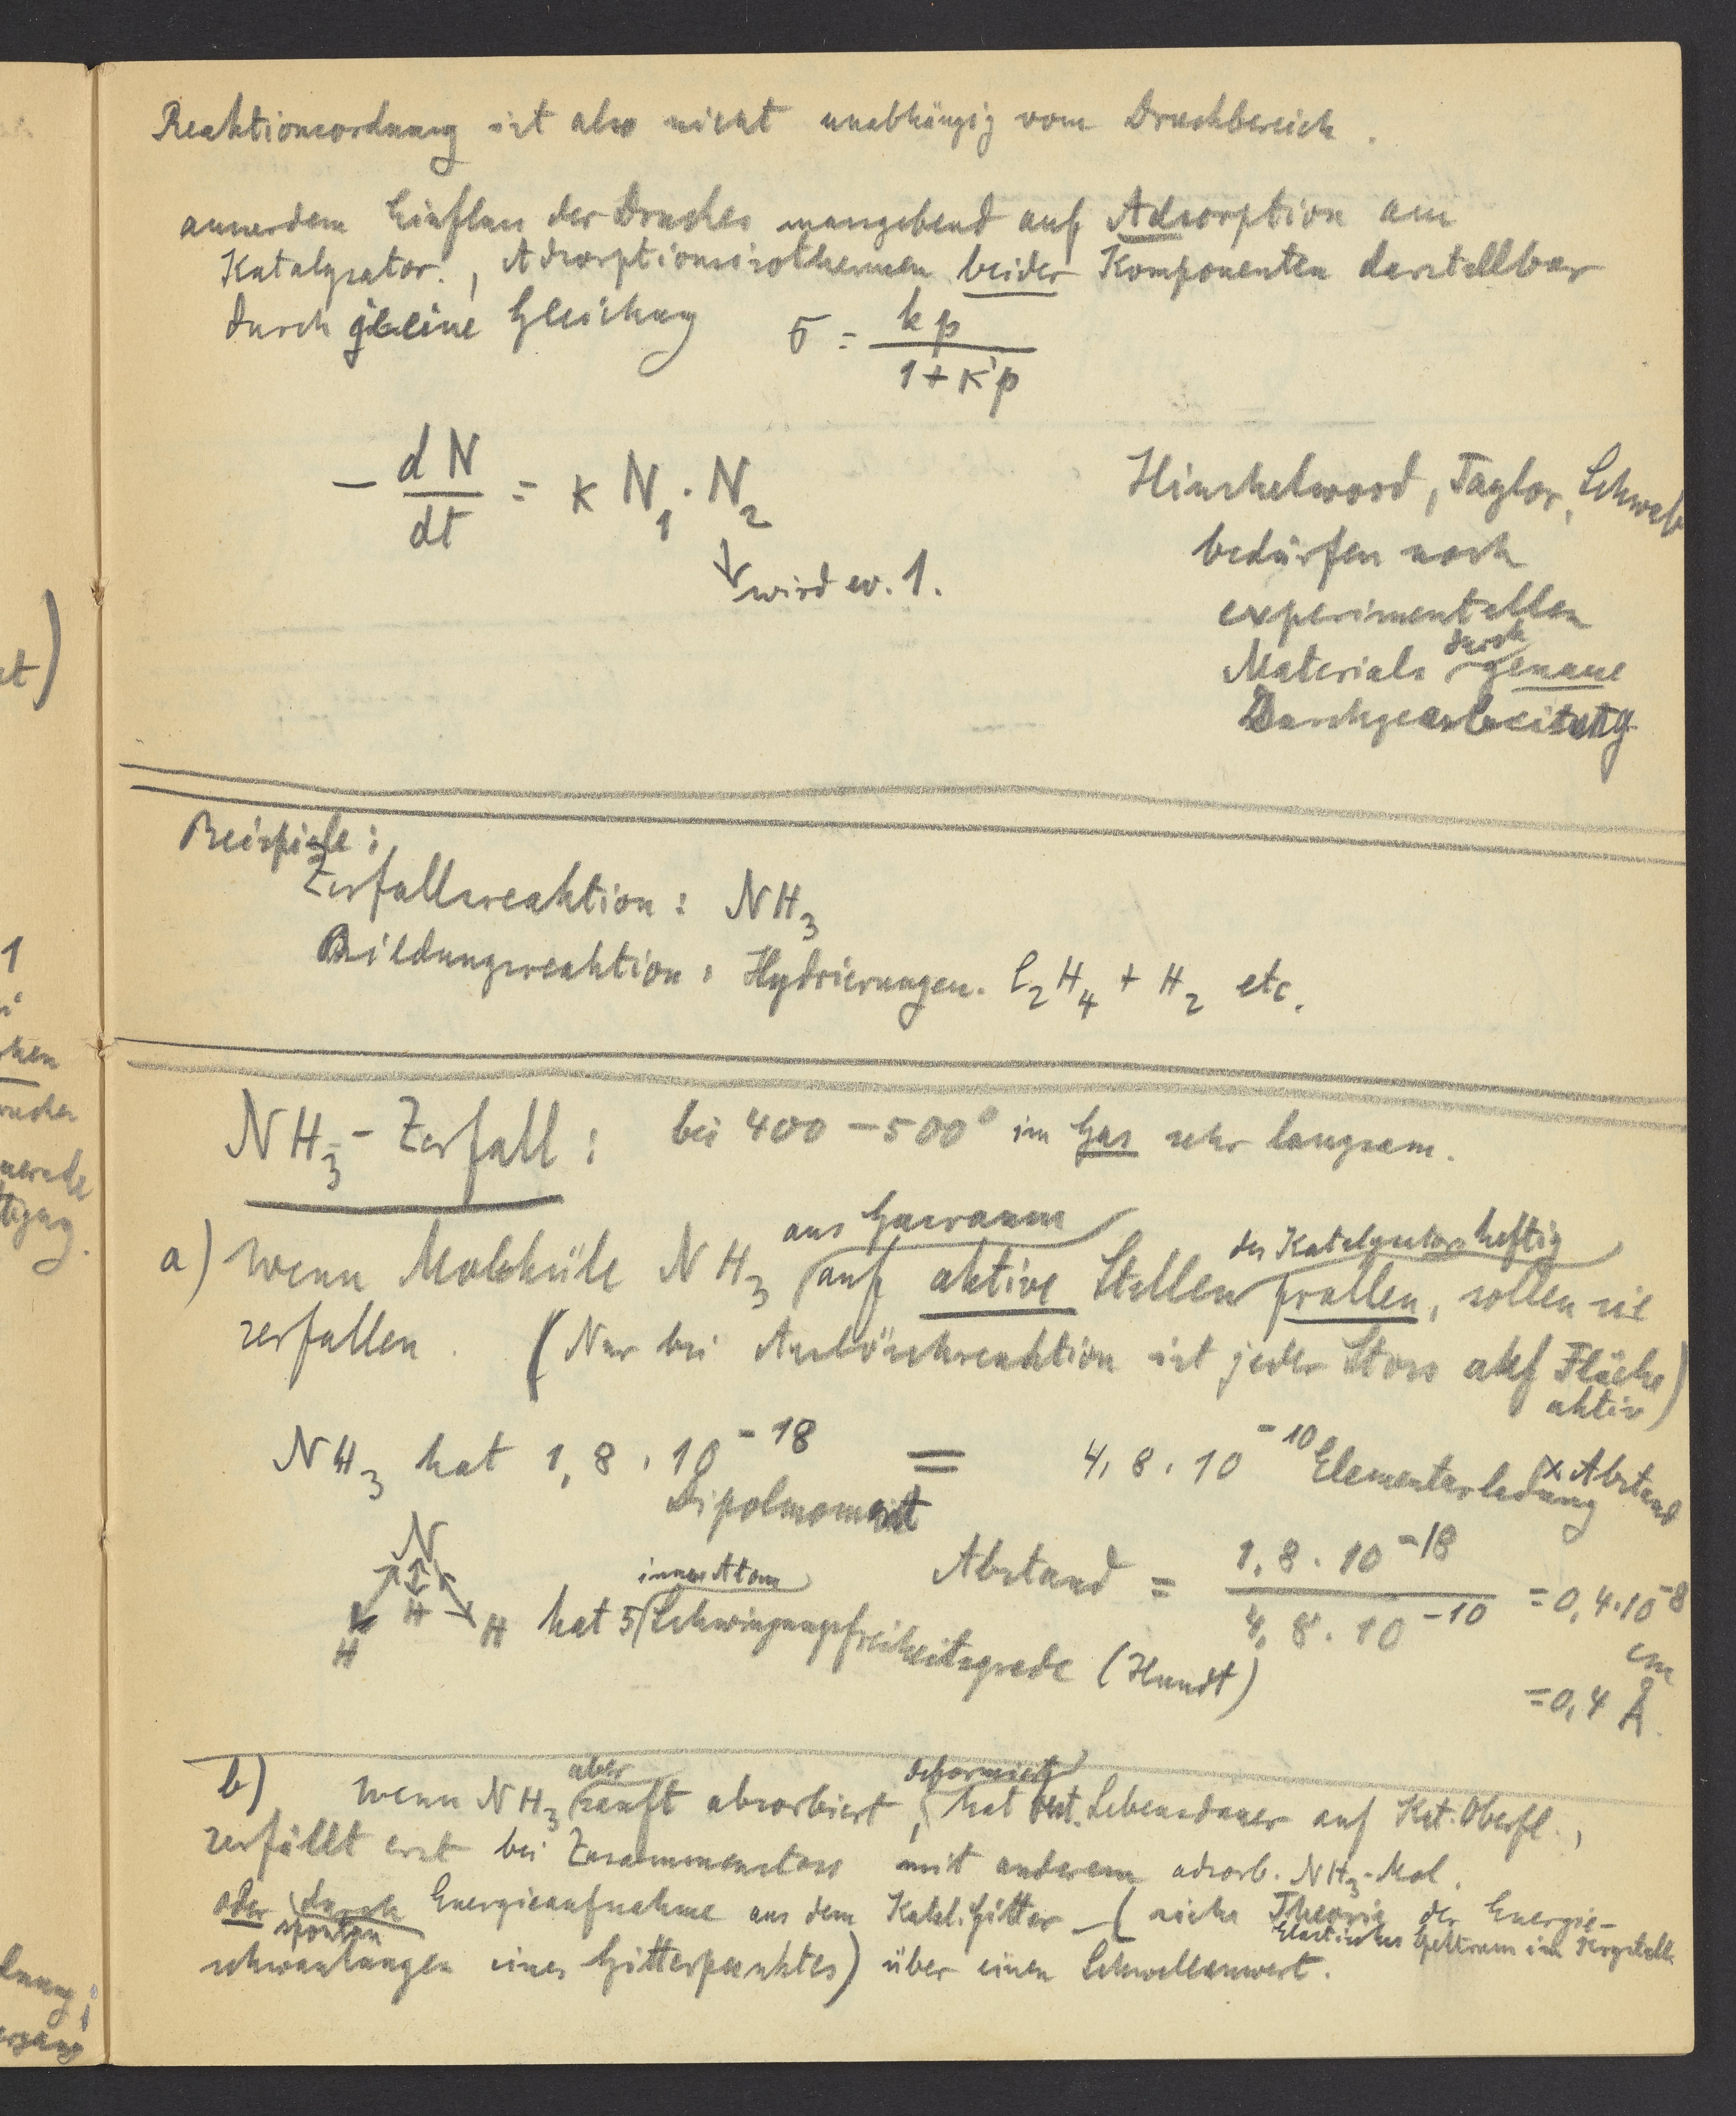 Reaktionsordnung ist also nicht unabhängig vom Druckbereich.
ausserdem Einfluss des Druckes massgebend auf Adsorption am
Katalysator., Adsorptionsisothermen beider Komponenten darstellbar
durch je eine Gleichung σ = k p / 1 + k' p
− dN/dt = k N₁ · N₂
↓ wird ev. 1.
Hinshelwood, Taylor, Schwab
bedürfen noch
experimentellen
Materials durch genaue
Durchgearbeitung
Beispiele:
Zerfallsreaktion: NH₃
Bildungsreaktion: Hydrierungen. C₂H₄ + H₂ etc.
NH₃-Zerfall: bei 400 – 500° im Gas sehr langsam.
a) Wenn Moleküle NH₃ aus Gasraum auf aktive Stellen des Katalysators heftig prallen, sollen sie
zerfallen. (Nur bei Auslöschreaktion ist jeder Stoss auf Fläche
aktiv)
NH₃ hat 1,8 · 10⁻¹⁸ = 4,8 · 10⁻¹⁰ Elementarladung × Abstand
Dipolmoment
N
H
H
H
hat 5 innerAtom Schwingungsfreiheitsgrade (Hundt)
Abstand = 1,8 · 10⁻¹⁸ / 4,8 · 10⁻¹⁰ = 0,4·10⁻⁸
cm
= 0,4 Å.
b) Wenn NH₃ aber sanft absorbiert, deformiert, hat best. Lebensdauer auf Kat. Oberfl.,
zerfällt erst bei Zusammenstoss mit anderem adsorb. NH₃-Mol.
oder spontan durch Energieaufnahme aus dem Katal.gitter – (siehe Theorie der Energie-
Elastisches Spektrum im Krystalle
schwankungen eines Gitterpunktes) über einen Schwellenwert.